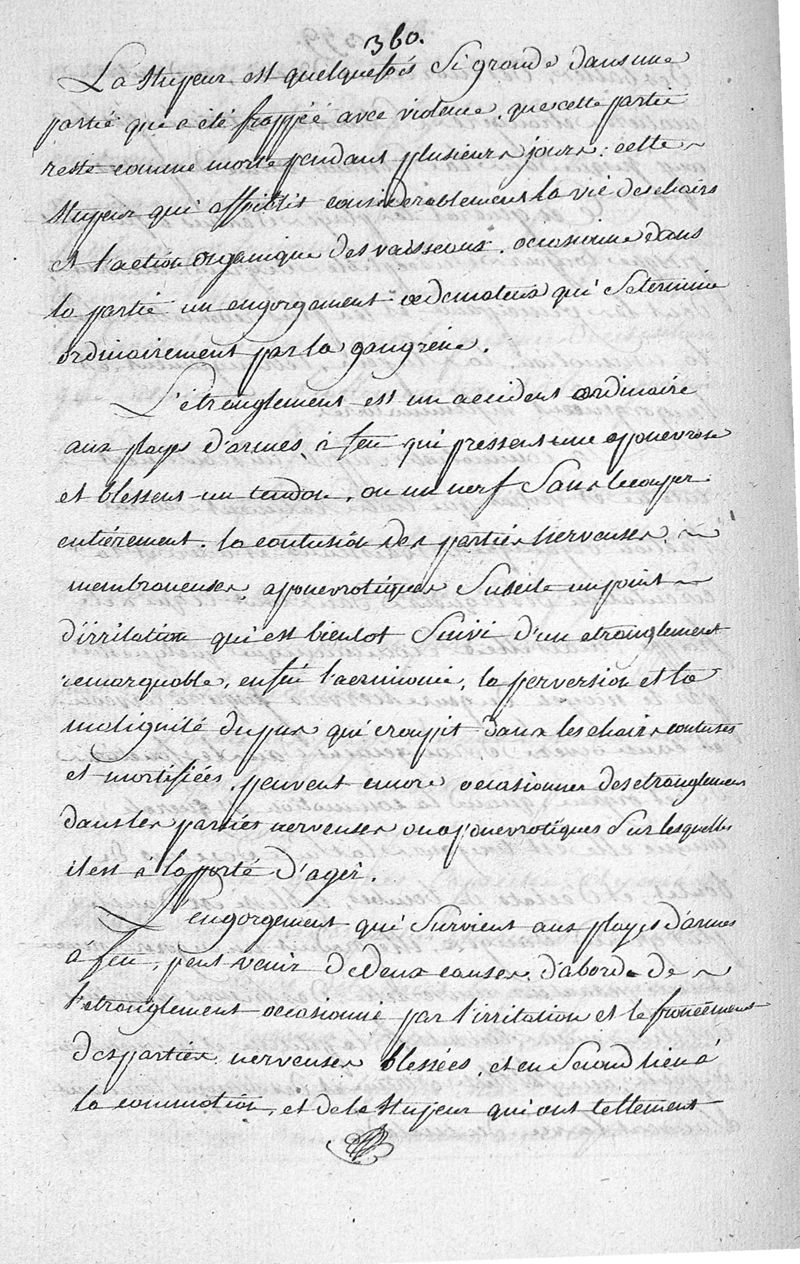 360.
La stupeur, est quelquefois si grande dans une
partie qui a été frappée avec violence, que cette partie
reste comme morte pendant plusieurs jours; cette
stupeur qui affoiblit considerablement la vie des chairs
et l'action organique des vaisseaux, occasionne dans
la partie un engorgement œdemateux qui se termine
ordinairement par la gangrène.
L'étranglement est un accident ordinaire
aux playes d'armes à feu qui pressent une aponevrose
et blessent un tendon, ou un nerf sans le couper
entièrement. la contusion des parties nerveuses,
membraneuses, aponevrotiques suscite un point
d'irritation qui est bientot suivi d'un etranglement
remarquable, enfin l'acrimonie, la perversion et la
malignité du pus qui croupit dans les chairs contuses
et mortifiées, peuvent encore occasionner des etranglemens
dans les parties nerveuses ou aponevrotiques sur lesquelles
il est à la porté d'agir.
L'engorgement qui survient aux playes d'armes
a feu, peut venir de deux causes, d'abord de
l'etranglement occasionné par l'irritation et le froncement
des parties nerveuses blessées, et en second lieu à
la commotion, et de la stupeur qui ont tellement